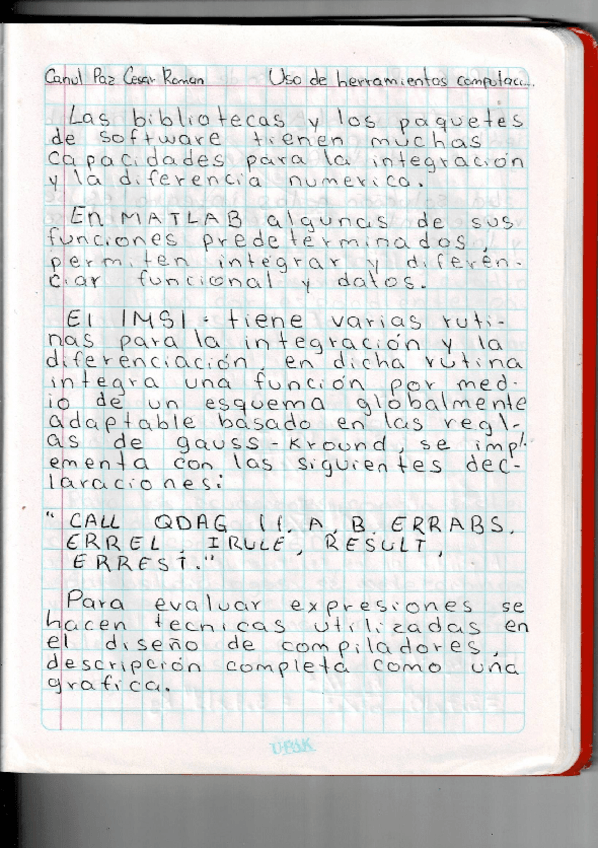 Canul Paz Cesar Roman Uso de herramientos computaci...
Las bibliotecas y los paquetes
de software tienen muchas
capacidades para la integración
y la diferencia numerica.
En MATLAB algunas de sus
funciones predeterminados,
permiten integrar y diferen-
ciar funcional y datos.
El IMSl. tiene varias ruti-
nas para la integración y la
diferenciación, en dicha rutina
integra una función por med-
io de un esquema globalmente
adaptable basado en las regl-
as de gauss-Kround, se impl-
ementa con las siguientes dec-
laraciones:
"CALL QDAG (f, A, B, ERRABS,
ERREL, IRULE, RESULT,
ERREST."
Para evaluar expresiones se
hacen tecnicas utilizadas en
el diseño de compiladores,
descripción completa como una
grafica.